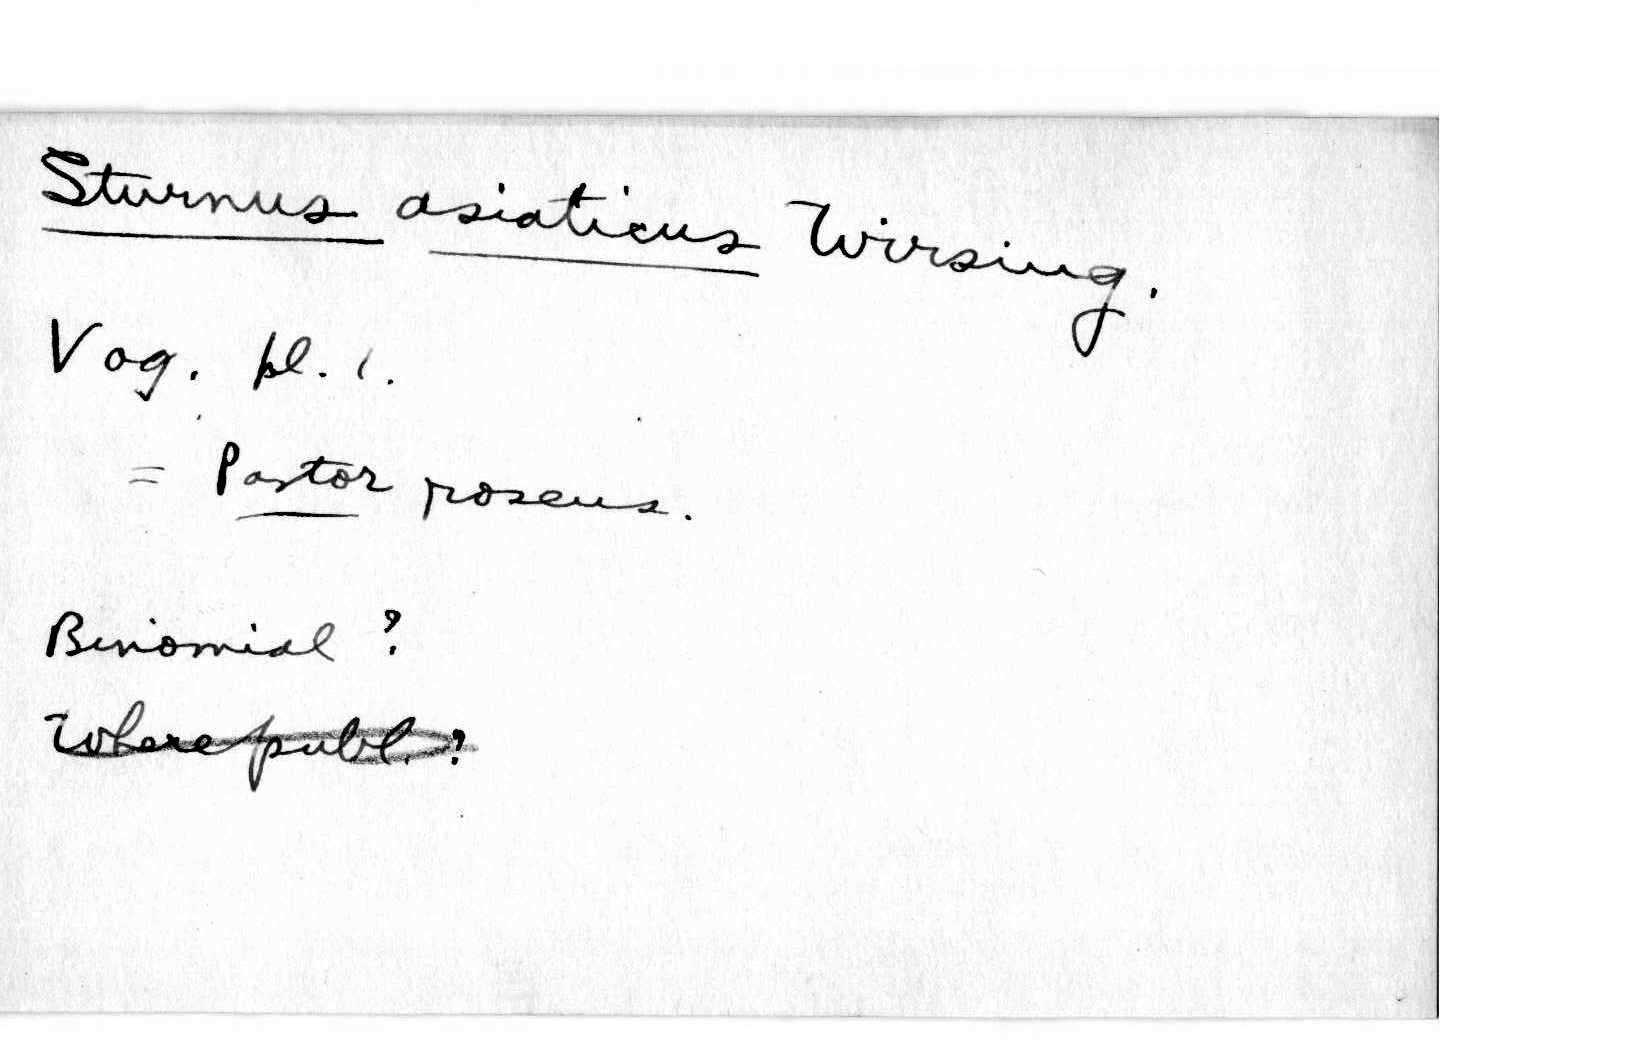 Sturnus asiaticus Wirsing.
Vog. pl. 1.
= Pastor roseus.
Binomial ?
Where publ. ?